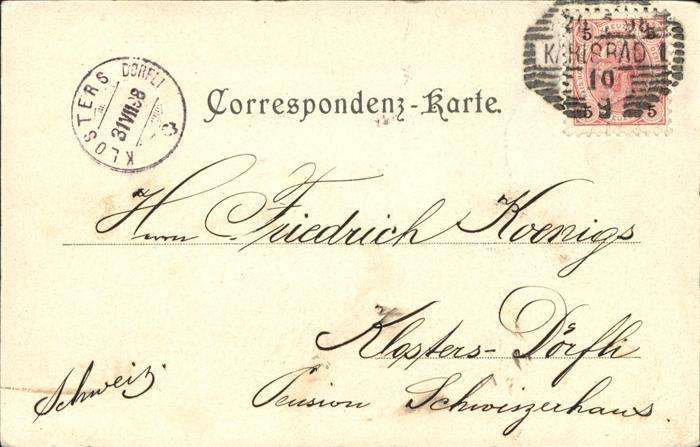 KLOSTERS DÖRFLI
31 VII 98
Correspondenz-Karte.
KARLSBAD 1
10
5 5
Herrn Friedrich Koenigs
Klosters-Dörfli
Schweiz.
Pension Schwiszerhaus.